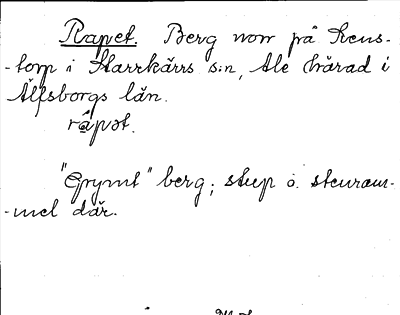 Rapet. Berg norr på Kens-
-torp i Starrkärrs s:n, Ale härad i
Älfsborgs län.
råpət.
"Grymt" berg; stup o. stenram-
-mel där.